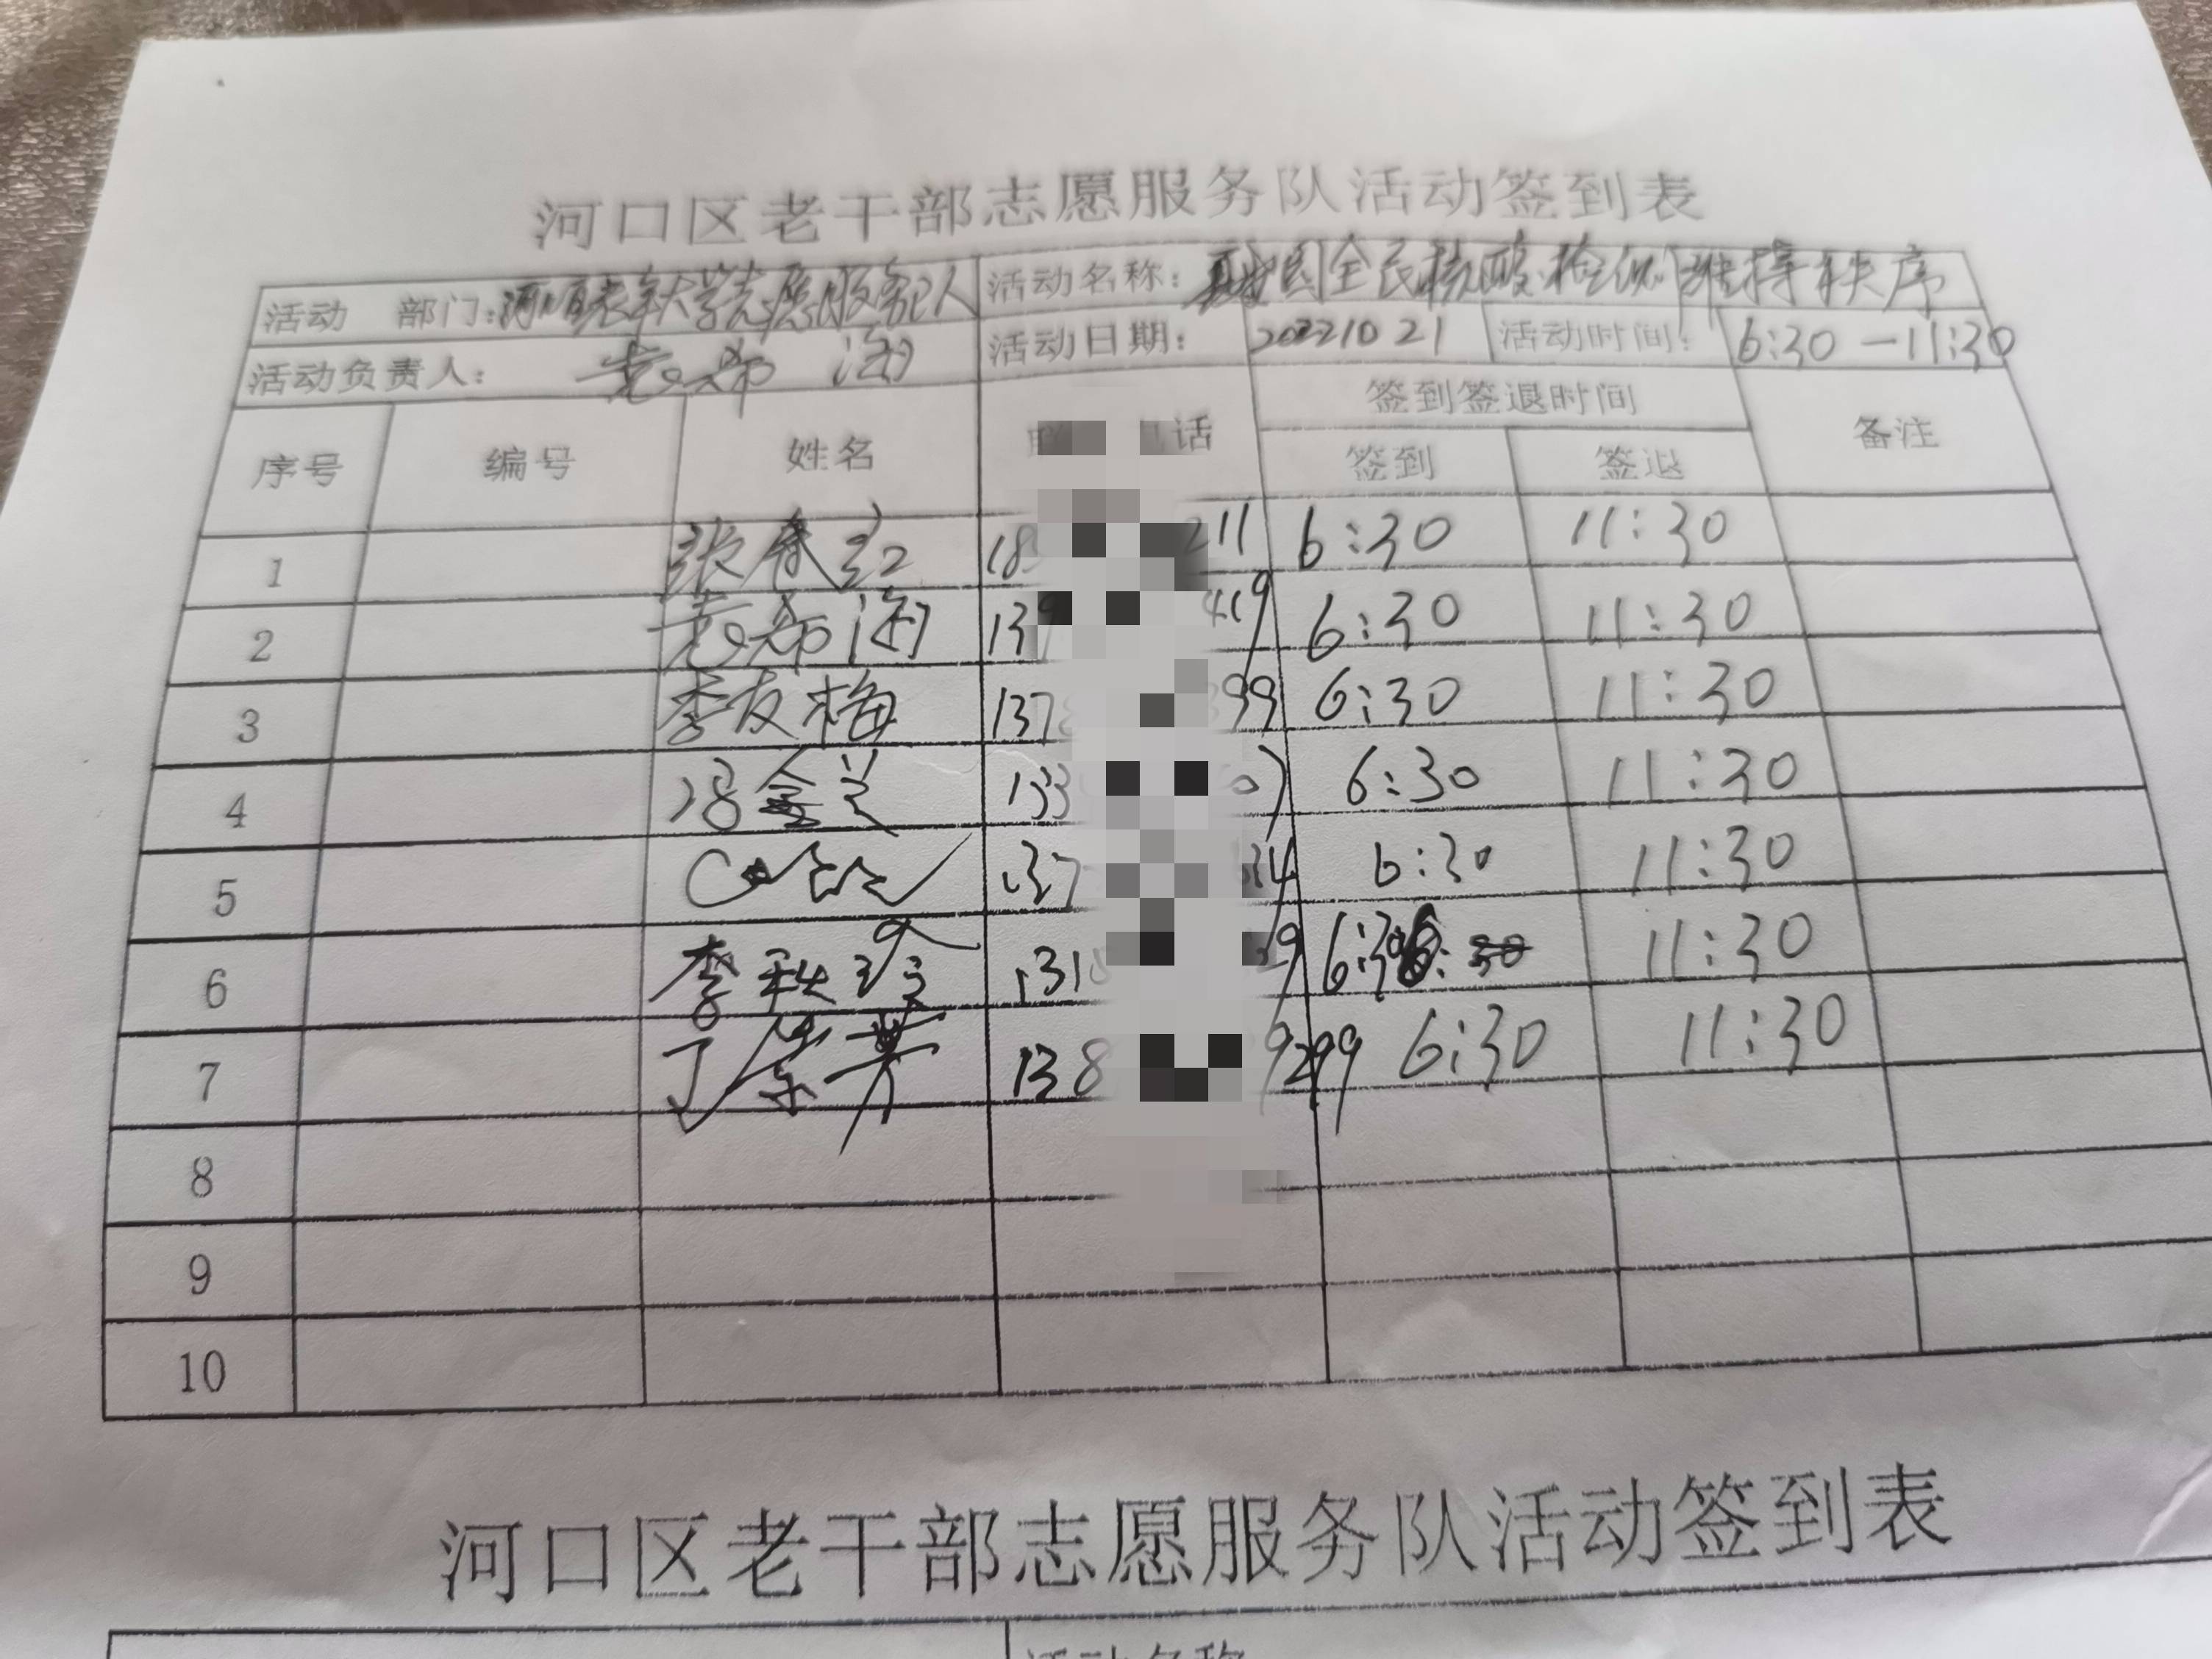 河口区老干部志愿服务队活动签到表
活动 部门：河口区老年大学志愿服务队 活动名称： 全民核酸检测维持秩序
活动负责人： 活动日期： 20221021 活动时间： 6:30—11:30
序号 编号 姓名 话 签到签退时间 备注
签到 签退
1 张春红 18 211 6:30 11:30
2 139 419 6:30 11:30
3 李友梅 137 399 6:30 11:30
4 冯金兰 133 6:30 11:30
5 137 6:30 11:30
6 李秋玲 131 9 6:30 11:30
7 丁荣芳 138 9299 6:30 11:30
8
9
10
河口区老干部志愿服务队活动签到表
活动名称